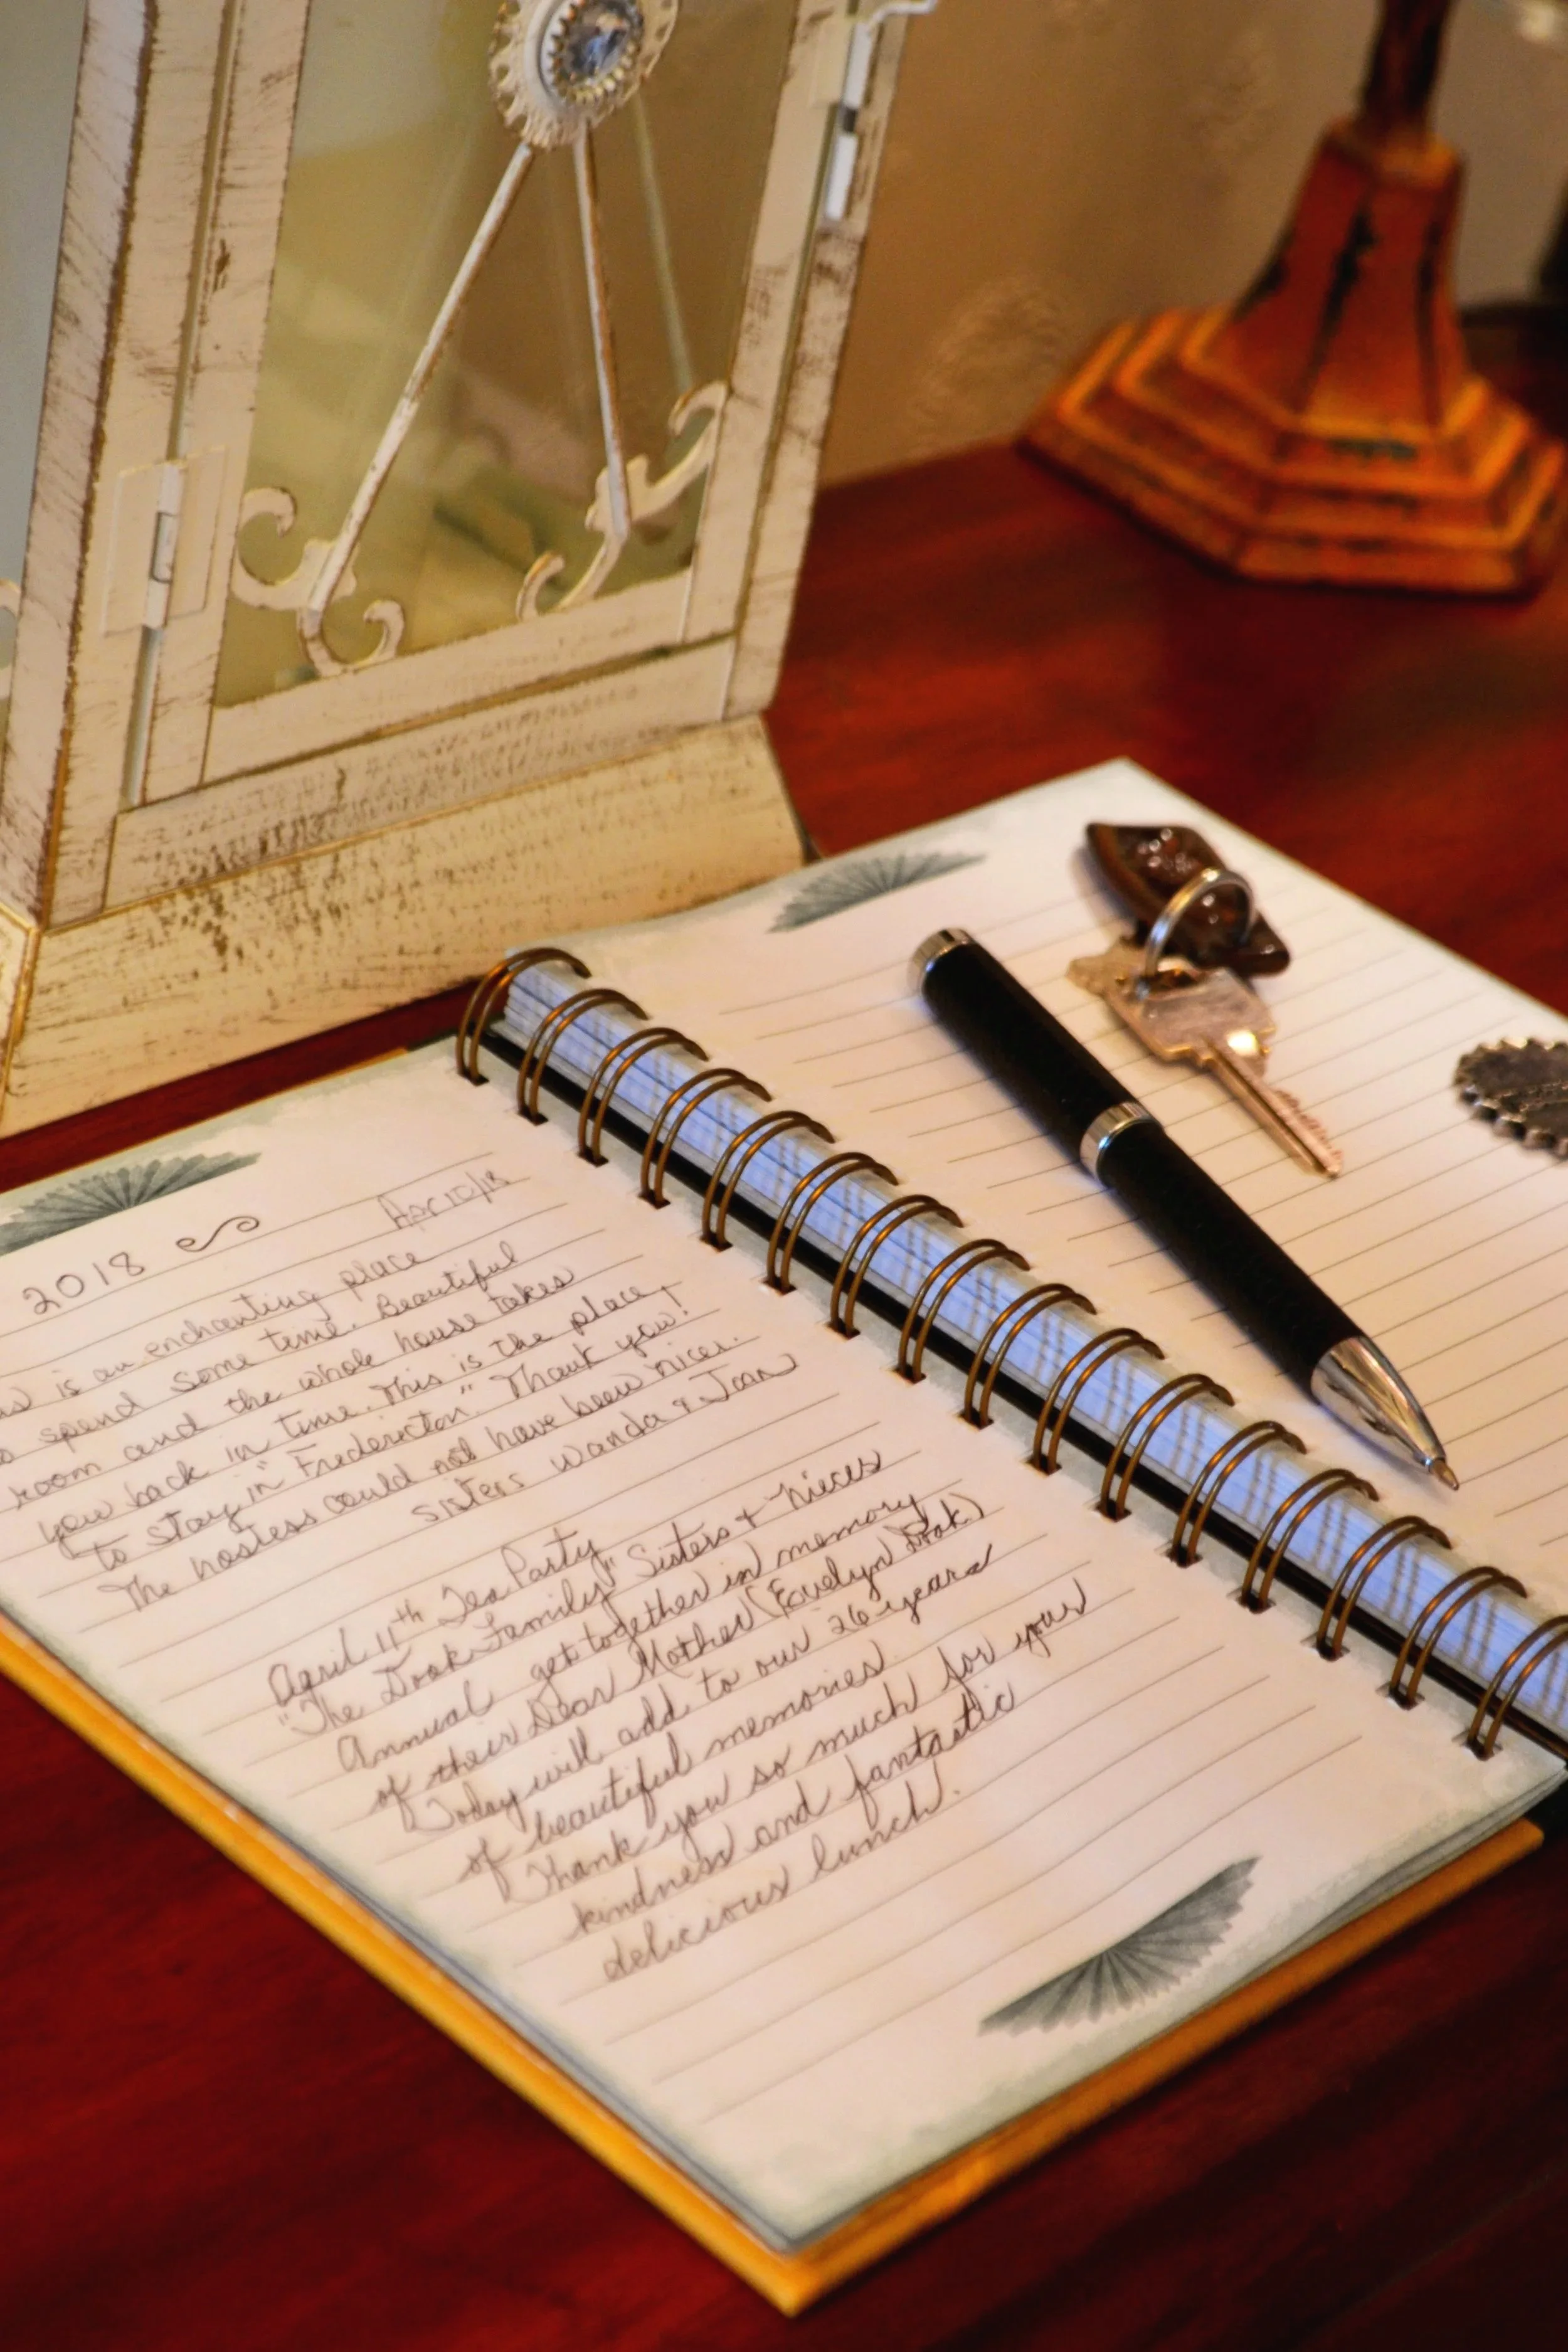 2018
Apr 10/18
is an enchanting place
spend some time. Beautiful
room and the whole house takes
you back in time. This is the place
to stay in "Fredericton". Thank you!
The hostess could not have been nicer.
Sisters Wanda & Joan
April 11th Tea Party
"The Dook Family" Sisters + Nieces
Annual get together in memory
of their Dear Mother (Evelyn Dook)
Today will add to our 26 years
of beautiful memories.
Thank you so much for your
kindness and fantastic
delicious lunch.